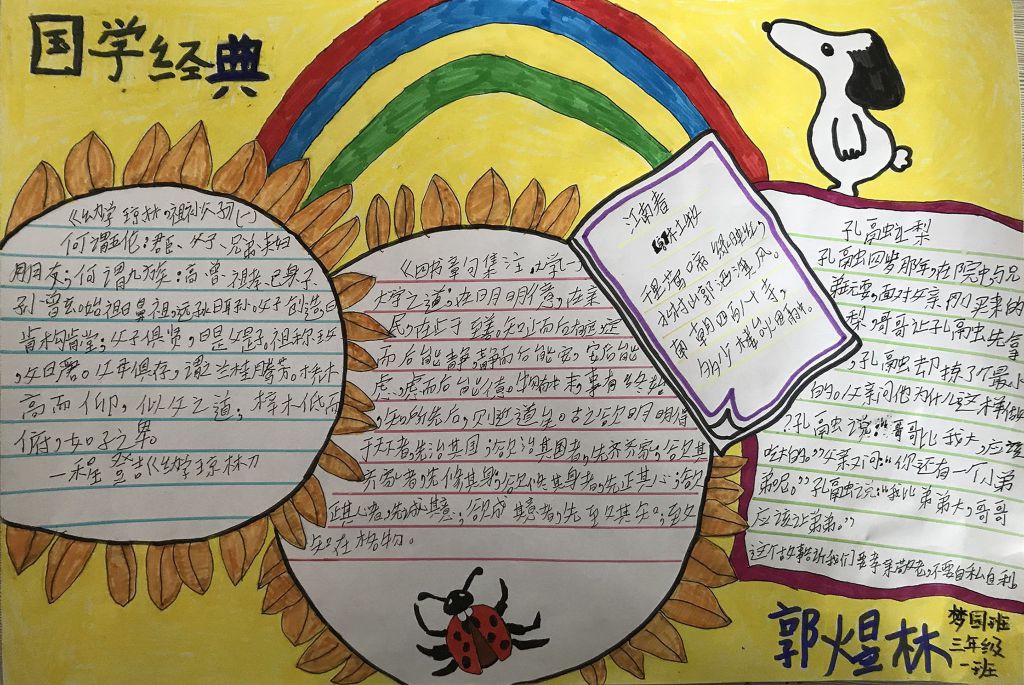 国学经典
《幼学琼林·祖孙父子(一)
何谓五伦:君臣、父子、兄弟、夫妇
朋友;何谓九族:高、曾、祖、考、己身、子、
孙、曾、玄。始祖曰鼻祖,远孙曰耳孙。父子创造,曰
肯构肯堂;父子俱贤,曰是父是子。祖称王父
,父曰严君。父母俱存,谓兰桂腾芳。桥木
高而仰,似父之道;梓木低而
俯,如子之卑。
—程登吉《幼学琼林》
《四书章句集注·大学一
大学之道:在明明德,在亲
民,在止于至善。知止而后有定;定
而后能静;静而后能安;安后能
虑;虑而后能得。物有本末,事有终始。
知所先后,则近道矣。古之欲明明德
于天下者,先治其国;欲治其国者,先齐其家;欲其
齐家者,先修其身;欲修其身者,先正其心;欲
正其心者,先诚其意;欲诚其意者,先至其知;至
知在格物。
江南春
千里莺啼绿映红,
水村山郭酒旗风。
南朝四百八十寺,
多少楼台烟雨中。
孔融让梨
孔融四岁那年,在院中与兄
弟玩耍,面对父亲们买来的
梨,哥哥让孔融先拿
,孔融却拣了个最小
的。父亲问他为什么这样做
?孔融说:“哥哥比我大,应该
吃大的。”父亲又问:“你还有一个小弟
弟呢。”孔融说:“我比弟弟大,哥哥
应该让弟弟。”
这个故事告诉我们要孝亲敬老,不要自私自利。
郭煜林
梦园班
三年级
一班